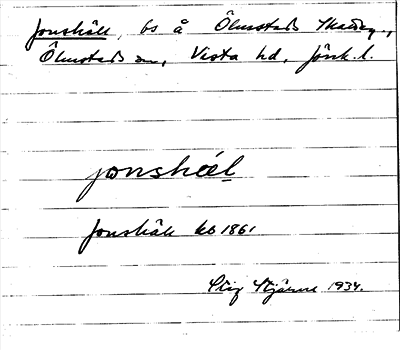 Jonshäll, bs å Ölmstads skatteg.,
Ölmstads sn, Vista hd, Jönk. l.
jonshä̀l
Jonshäll kb 1861
Stig Stjärne 1934.